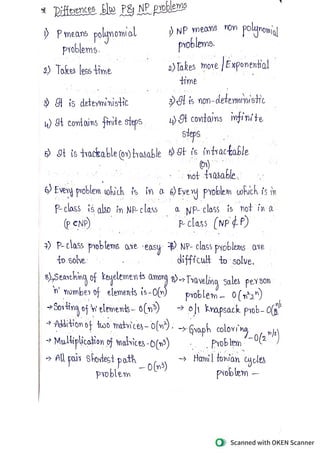 * Differences b/w P & NP problems
1) P means polynomial problems.
1) NP means non polynomial problems.
2) Takes less time
2) Takes more / Exponential time
3) It is deterministic
3) It is non-deterministic
4) It contains finite steps
4) It contains infinite steps
5) It is tractable (or) trasable
5) It is intractable (or) not trasable.
6) Every problem which is in a P-class is also in NP-class (P⊂NP)
6) Every problem which is in a NP-class is not in a P-class (NP⊄P)
7) P-class problems are easy to solve.
7) NP-class problems are difficult to solve.
8) → Searching of key elements among 'n' number of elements is - O(n)
→ Sorting of 'n' elements - O(n²)
→ Addition of two matrices - O(n²).
→ Multiplication of matrices - O(n³)
→ All pair shortest path problem - O(n³)
8) → Traveling sales person problem - O(n²2ⁿ)
→ 0/1 knapsack prob -
→ Graph coloring problem -
→ Hamiltonian cycles problem -
Scanned with OKEN Scanner